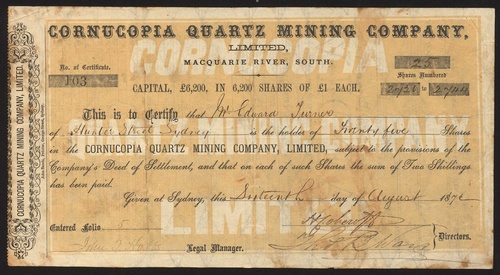 CORNUCOPIA QUARTZ MINING COMPANY,
LIMITED,
MACQUARIE RIVER, SOUTH.
No. of Certificate.
103
25
Shares Numbered
2720 to 2744
CAPITAL, £6,200, IN 6,200 SHARES OF £1 EACH.
This is to Certify that Mr Edward Turner
of Hunter Street Sydney is the holder of Twenty five Shares
in the CORNUCOPIA QUARTZ MINING COMPANY, LIMITED, subject to the provisions of the
Company's Deed of Settlement, and that on each of such Shares the sum of Two Shillings
has been paid.
Given at Sydney, this Sixteenth day of August 1872
Entered folio
Legal Manager.
Directors.
CORNUCOPIA
MINING COMPANY
LIMITED
CORNUCOPIA QUARTZ MINING COMPANY, LIMITED.